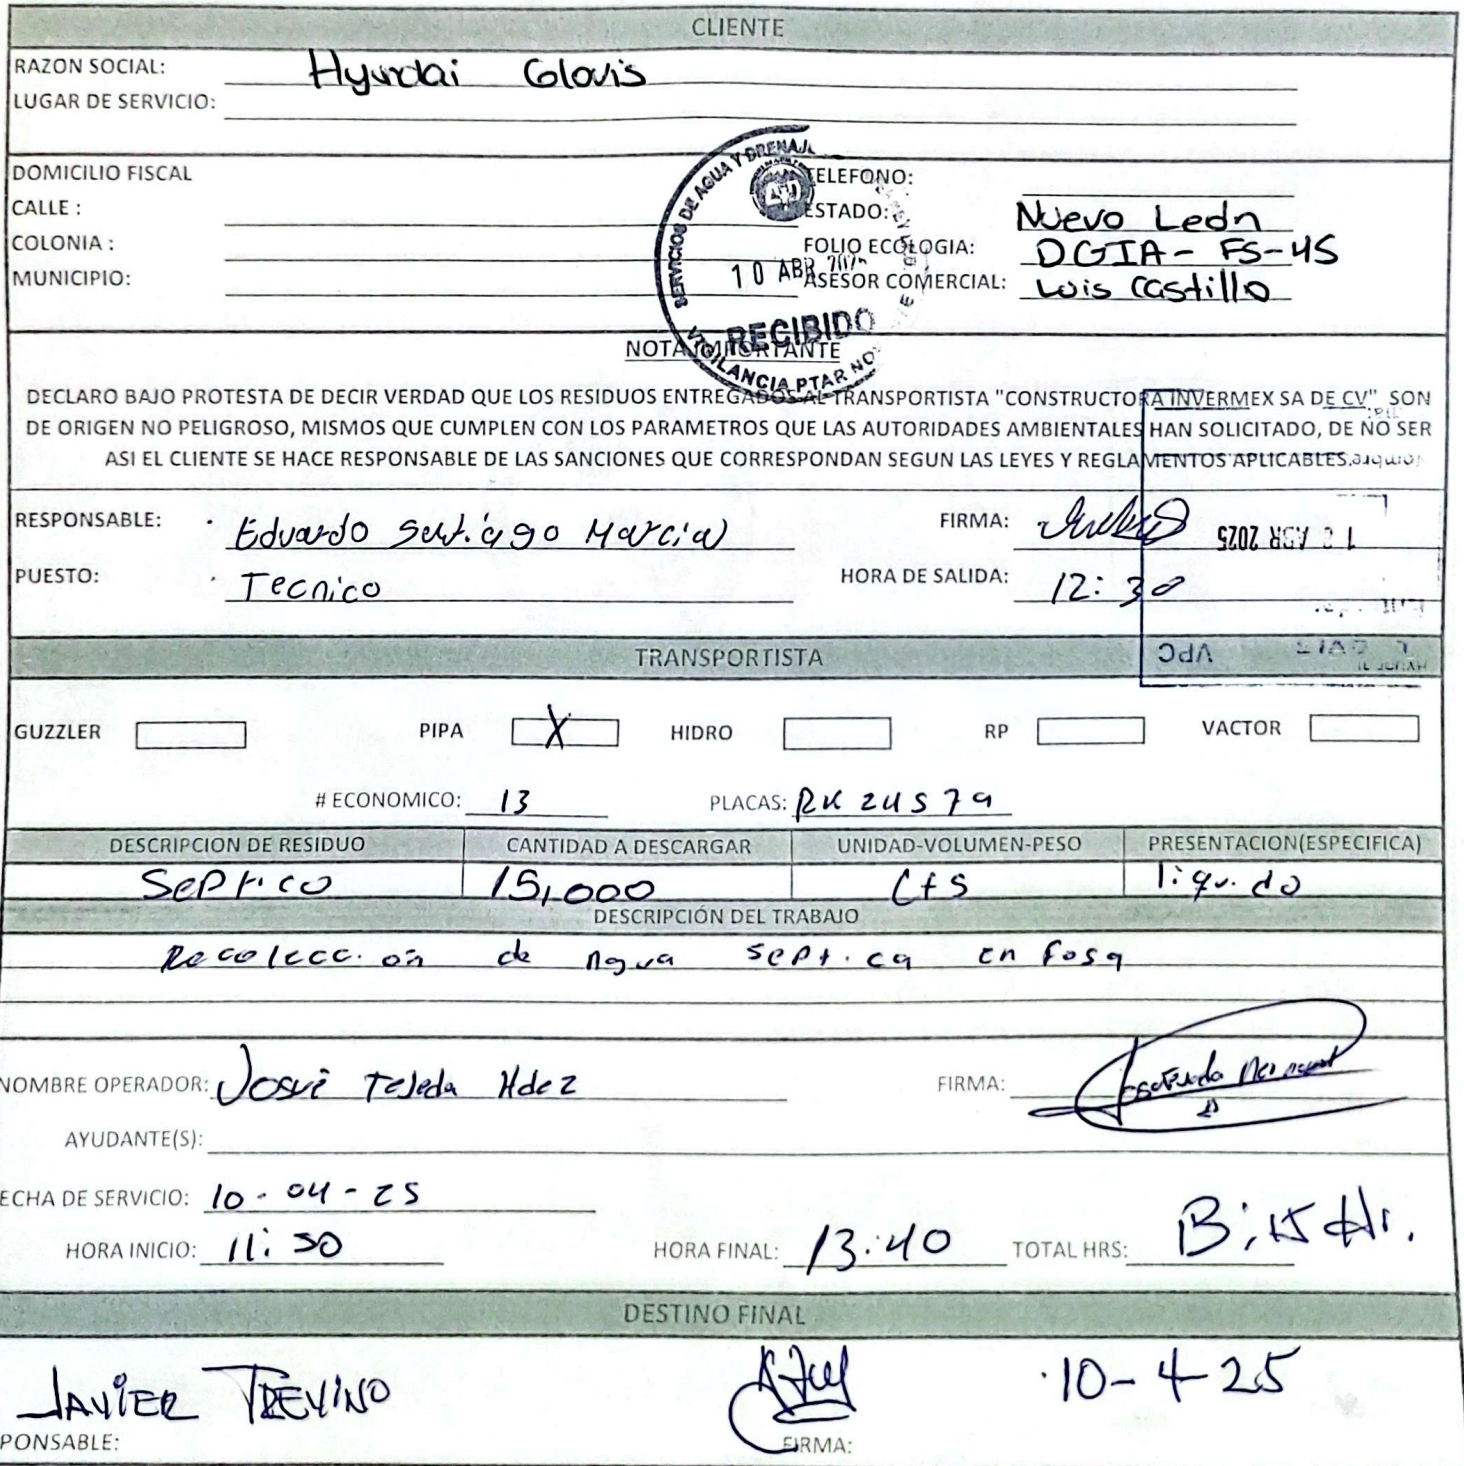 CLIENTE
RAZON SOCIAL: Hyundai Glovis
LUGAR DE SERVICIO:
DOMICILIO FISCAL
TELEFONO:
CALLE :
ESTADO: Nuevo León
COLONIA :
FOLIO ECOLOGIA: DGIA- FS-45
MUNICIPIO:
ASESOR COMERCIAL: Luis Castillo
SERVICIOS DE AGUA Y DRENAJE
10 ABR
RECIBIDO
VIGILANCIA PTAR NO
NOTA IMPORTANTE
DECLARO BAJO PROTESTA DE DECIR VERDAD QUE LOS RESIDUOS ENTREGADOS AL TRANSPORTISTA "CONSTRUCTORA INVERMEX SA DE CV" SON
DE ORIGEN NO PELIGROSO, MISMOS QUE CUMPLEN CON LOS PARAMETROS QUE LAS AUTORIDADES AMBIENTALES HAN SOLICITADO, DE NO SER
ASI EL CLIENTE SE HACE RESPONSABLE DE LAS SANCIONES QUE CORRESPONDAN SEGUN LAS LEYES Y REGLAMENTOS APLICABLES.
Nombre
RESPONSABLE: Eduardo Santiago Marcial FIRMA:
ABR 2025
PUESTO: Tecnico HORA DE SALIDA: 12:30
VPC
TRANSPORTISTA
GUZZLER PIPA X HIDRO RP VACTOR
# ECONOMICO: 13 PLACAS: RK 24579
DESCRIPCION DE RESIDUO CANTIDAD A DESCARGAR UNIDAD-VOLUMEN-PESO PRESENTACION(ESPECIFICA)
Septico 15,000 Lts liquido
DESCRIPCIÓN DEL TRABAJO
Recolección de Agua septica en fosa
NOMBRE OPERADOR: Josué Tejeda Hdez FIRMA:
AYUDANTE(S):
ECHA DE SERVICIO: 10-04-25
HORA INICIO: 11:50 HORA FINAL: 13:40 TOTAL HRS:
DESTINO FINAL
JAVIER TREVIÑO 10-4-25
PONSABLE: FIRMA: